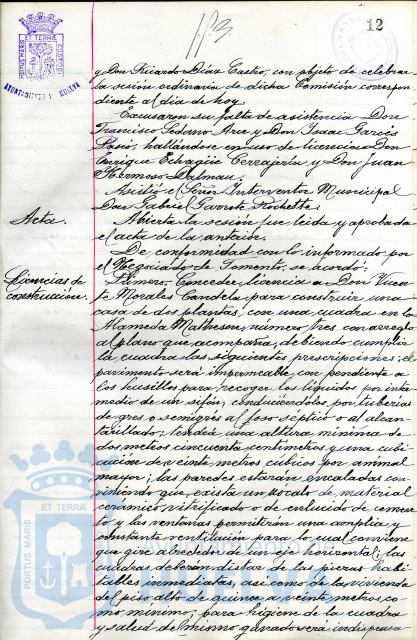 12
PORTUS MARIS ET TERRÆ CUSTODIA
AYUNTAMIENTO DE HUELVA
y Don Ricardo Díaz Castro, con objeto de celebrar
la sesión ordinaria de dicha Comisión correspon-
diente al día de hoy.
Excusaron su falta de asistencia Don
Francisco Sedano Arce y Don Isaac Garcés
hallándose en uso de licencia Don
Enrique Echagüe Cerrajería y Don Juan
Hermoso Dalmau.
Asistió el Señor Interventor Municipal
Don Gabriel Garrote
Acta.
Abierta la sesión fue leída y aprobada
el acta de la anterior.
De conformidad con lo informado por
el Negociado de Fomento, se acordó:
Licencias de
construcción.
Primero. Conceder licencia a Don Vicen-
te Morales Candela para construir una
casa de dos plantas, con una cuadra en la
Alameda Matheson, número tres con arreglo
al plano que acompaña, debiendo cumplir
la cuadra las siguientes prescripciones: el
pavimento será impermeable con pendiente a
los husillos para recoger los líquidos por inter-
medio de un sifón, conduciéndoles por tuberías
de gres o semigrés al foso séptico o al alcan-
tarillado; tendrá una altura mínima de
dos metros cincuenta centímetros y una cubi-
cación de veinte metros cúbicos por animal
mayor; las paredes estarán encaladas con-
viniendo que exista un zócalo de material
cerámico vitrificado o de enlucido de cemen-
to y las ventanas permitirán una amplia y
constante ventilación para lo cual conviene
que gire alrededor de un eje horizontal; las
cuadras deberán distar de las piezas habi-
tables inmediatas, así como de la vivienda
del piso alto de quince a veinte metros, co-
mo mínimo; para higiene de la cuadra
y salud del mismo ganado será indispensa-